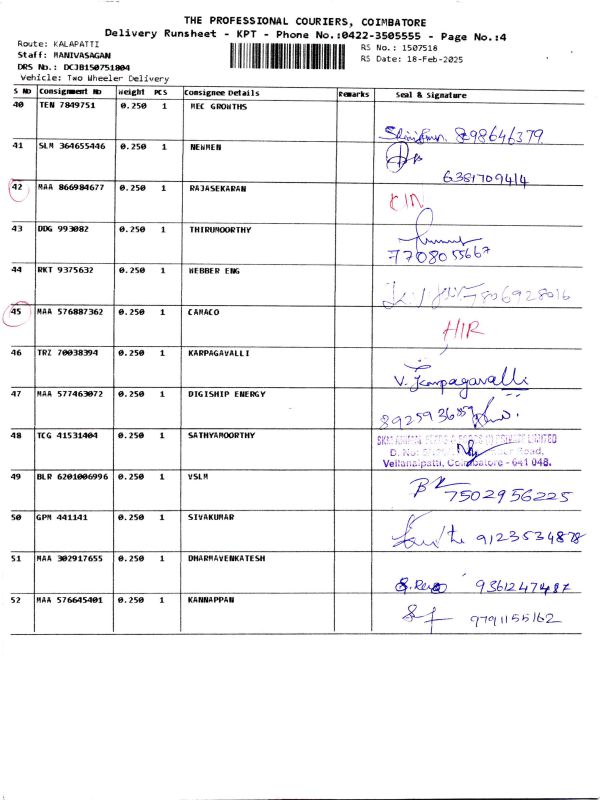 THE PROFESSIONAL COURIERS, COIMBATORE
Delivery Runsheet - KPT - Phone No.:0422-3505555 - Page No.:4
Route: KALAPATTI
RS No.: 1507518
Staff: MANIVASAGAN
RS Date: 18-Feb-2025
DRS No.: DCJB150751804
Vehicle: Two Wheeler Delivery
S No Consignment No Weight PCS Consignee Details Remarks Seal & Signature
40 TEN 7849751 0.250 1 MEC GROWTHS
8298646379
41 SLM 364655446 0.250 1 NEWMEN
6381709414
42 MAA 866984677 0.250 1 RAJASEKARAN
43 DDG 993082 0.250 1 THIRUMOORTHY
7708055667
44 RKT 9375632 0.250 1 WEBBER ENG
7806928016
45 MAA 576887362 0.250 1 CAMACO
H/R
46 TRZ 70038394 0.250 1 KARPAGAVALLI
V. Karpagavalli
47 MAA 577463072 0.250 1 DIGISHIP ENERGY
48 TCG 41531404 0.250 1 SATHYAMOORTHY
PRIVATE LIMITED
D. No: Road,
Vellanaipatti, Coimbatore - 641 048.
49 BLR 6201006996 0.250 1 VSLM
7502956225
50 GPM 441141 0.250 1 SIVAKUMAR
9123534878
51 MAA 302917655 0.250 1 DHARMAVENKATESH
9361247487
52 MAA 576645401 0.250 1 KANNAPPAN
9791155162